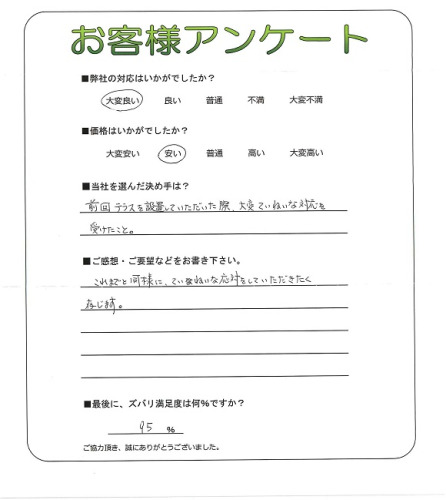 お客様アンケート
■弊社の対応はいかがでしたか？
大変良い 良い 普通 不満 大変不満
■価格はいかがでしたか？
大変安い 安い 普通 高い 大変高い
■当社を選んだ決め手は？
前回テラスを設置していただいた際、大変ていねいな対応を
受けたこと。
■ご感想・ご要望などをお書き下さい。
これまでと同様に、ていねいな応対をしていただきたく
存じます。
■最後に、ズバリ満足度は何％ですか？
95 ％
ご協力頂き、誠にありがとうございました。